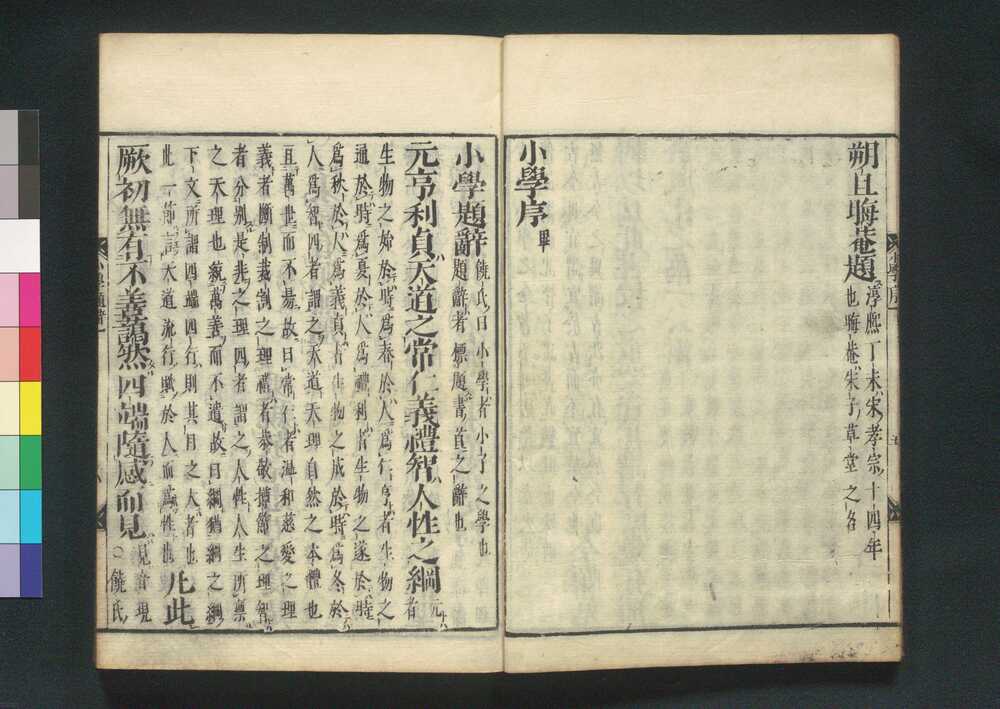 朔旦晦菴題
淳熙丁未宋孝宗十四年
也晦菴朱子草堂之名
小學序畢
小學題辭
饒氏曰小學者小子之學也
題辭者標題書首之辭也
元亨利貞天道之常仁義禮智人性之綱
元
者
生物之始於時爲春於人爲仁亨者生物之
通於時爲夏於人爲禮利者生物之遂於時
爲秋於人爲義貞者生物之成於時爲冬於
人爲智四者謂之天道天理自然之本體也
亘萬世而不易故曰常仁者溫和慈愛之理
義者斷制裁割之理禮者恭敬撙節之理智
者分別是非之理四者謂之人性人生所禀
之天理也統萬善而不遺故曰綱猶網之綱
下文所謂四端四行則其目之大者也
此一節言天道流行賦於人而爲性也
凡此
厥初無有不善藹然四端隨感而見
見音現
○饒氏